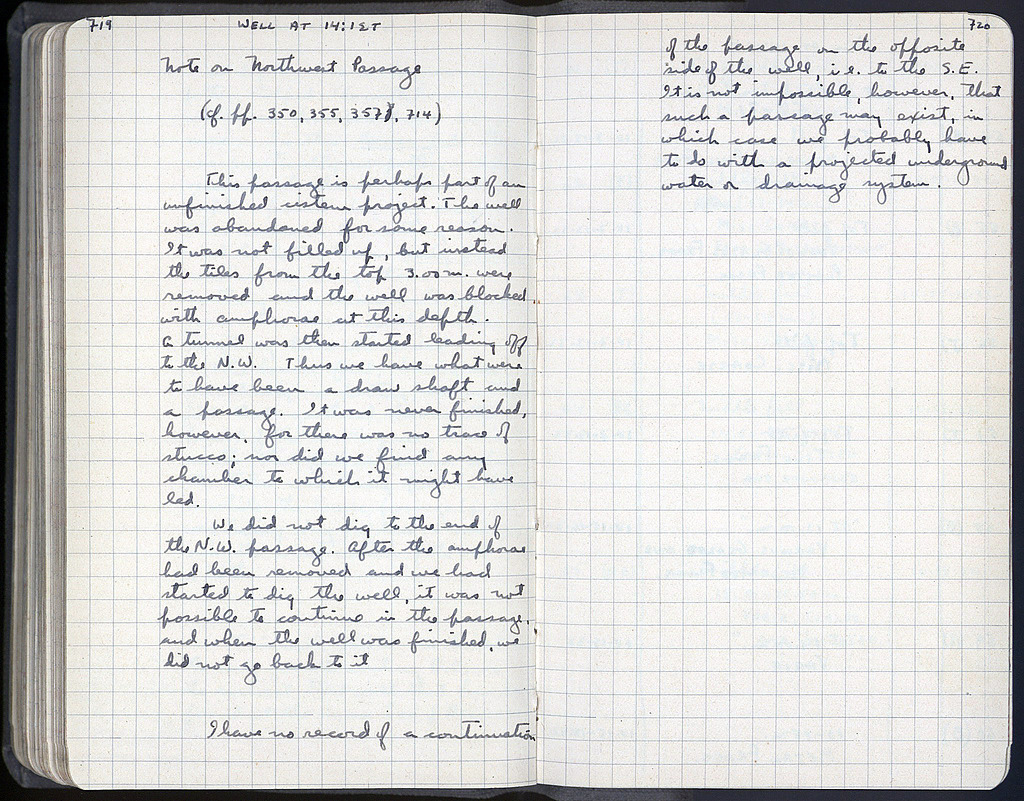 719
WELL AT 14:1ΣΤ
Note on Northwest Passage
(cf. pp. 350, 355, 357, 714)
This passage is perhaps part of an
unfinished cistern project. The well
was abandoned for some reason.
It was not filled up, but instead
the tiles from the top 3.00 m. were
removed and the well was blocked
with amphorae at this depth.
A tunnel was then started leading off
to the N.W. Thus we have what were
to have been a draw shaft and
a passage. It was never finished,
however, for there was no trace of
stucco; nor did we find any
chamber to which it might have
led.
We did not dig to the end of
the N.W. passage. After the amphorae
had been removed and we had
started to dig the well, it was not
possible to continue in the passage,
and when the well was finished, we
did not go back to it
I have no record of a continuation
720
of the passage on the opposite
side of the well, i.e. to the S.E.
It is not impossible, however, that
such a passage may exist, in
which case we probably have
to do with a projected underground
water or drainage system.